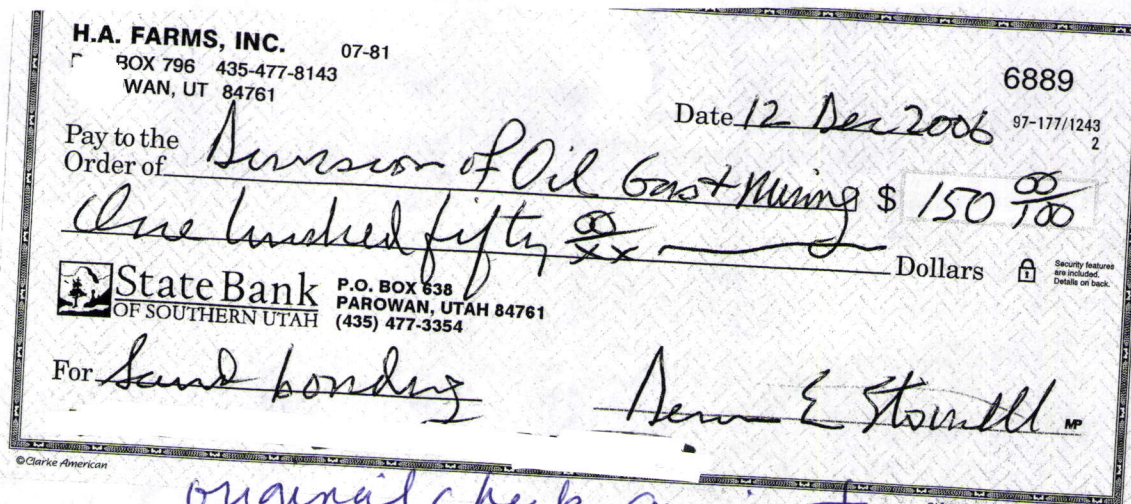 H.A. FARMS, INC. 07-81
BOX 796 435-477-8143
WAN, UT 84761
6889
Date 12 Dec 2006 97-177/1243
2
Pay to the
Order of Division of Oil Gas + Mining $ 150 00/100
One hundred fifty 00/xx Dollars
Security features
are included.
Details on back.
State Bank
OF SOUTHERN UTAH
P.O. BOX 638
PAROWAN, UTAH 84761
(435) 477-3354
For Sand bonding
E Stowell MP
©Clarke American
original check